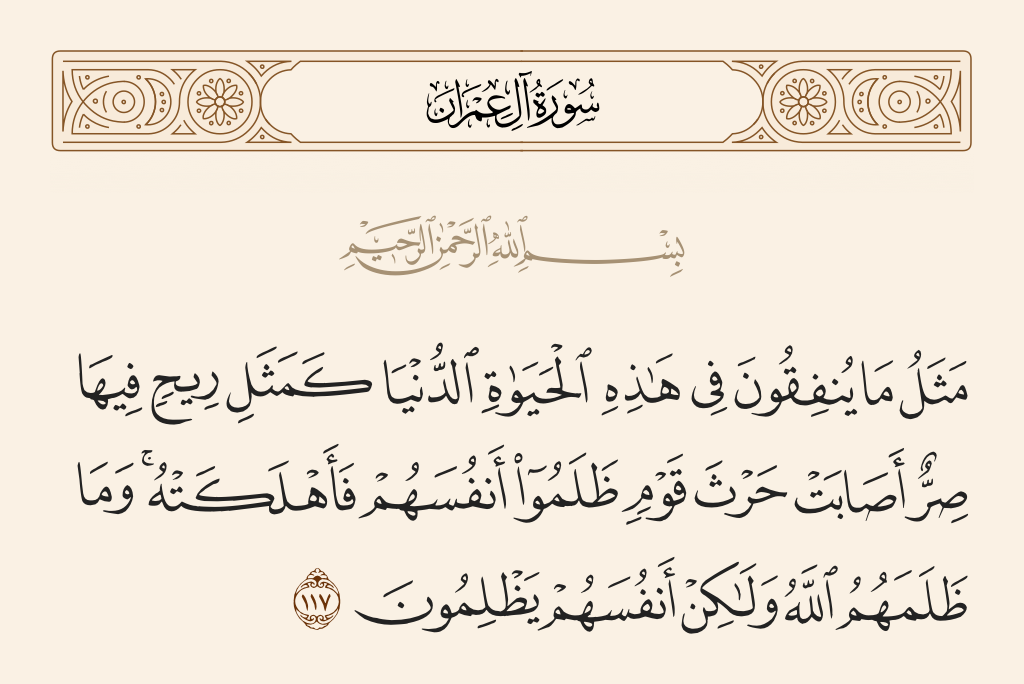 سُورَةُ آلِ عِمْرَانَ
بِسْمِ ٱللَّهِ ٱلرَّحْمَٰنِ ٱلرَّحِيمِ
مَثَلُ مَا يُنفِقُونَ فِى هَٰذِهِ ٱلْحَيَوٰةِ ٱلدُّنْيَا كَمَثَلِ رِيحٍ فِيهَا
صِرٌّ أَصَابَتْ حَرْثَ قَوْمٍ ظَلَمُوٓا۟ أَنفُسَهُمْ فَأَهْلَكَتْهُ ۚ وَمَا
ظَلَمَهُمُ ٱللَّهُ وَلَٰكِنْ أَنفُسَهُمْ يَظْلِمُونَ ١١٧